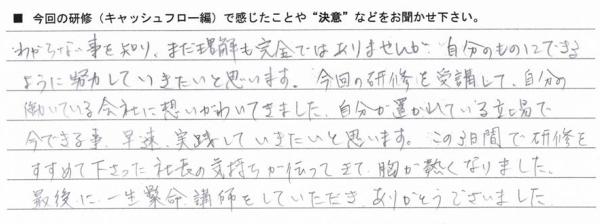 ■ 今回の研修（キャッシュフロー編）で感じたことや“決意”などをお聞かせ下さい。
わからない事を知り、まだ理解も完全ではありませんが、自分のものにできる
ように努力していきたいと思います。今回の研修を受講して、自分の
働いている会社に想いがわいてきました。自分が置かれている立場で
今できる事、早速、実践していきたいと思います。この3日間で研修を
すすめて下さった社長の気持ちが伝ってきて、胸が熱くなりました。
最後に、一生懸命、講師をしていただき、ありがとうございました。